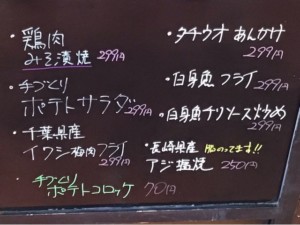 ・鶏肉
みそ漬焼 299円
・手づくり
ポテトサラダ 299円
・千葉県産
イワシ梅肉フライ
299円
・手づくり
ポテトコロッケ 70円
・タチウオ あんかけ
299円
・白身魚 フライ
299円
・白身魚チリソース炒め
299円
・長崎県産 脂のってます!!
アジ塩焼 250円